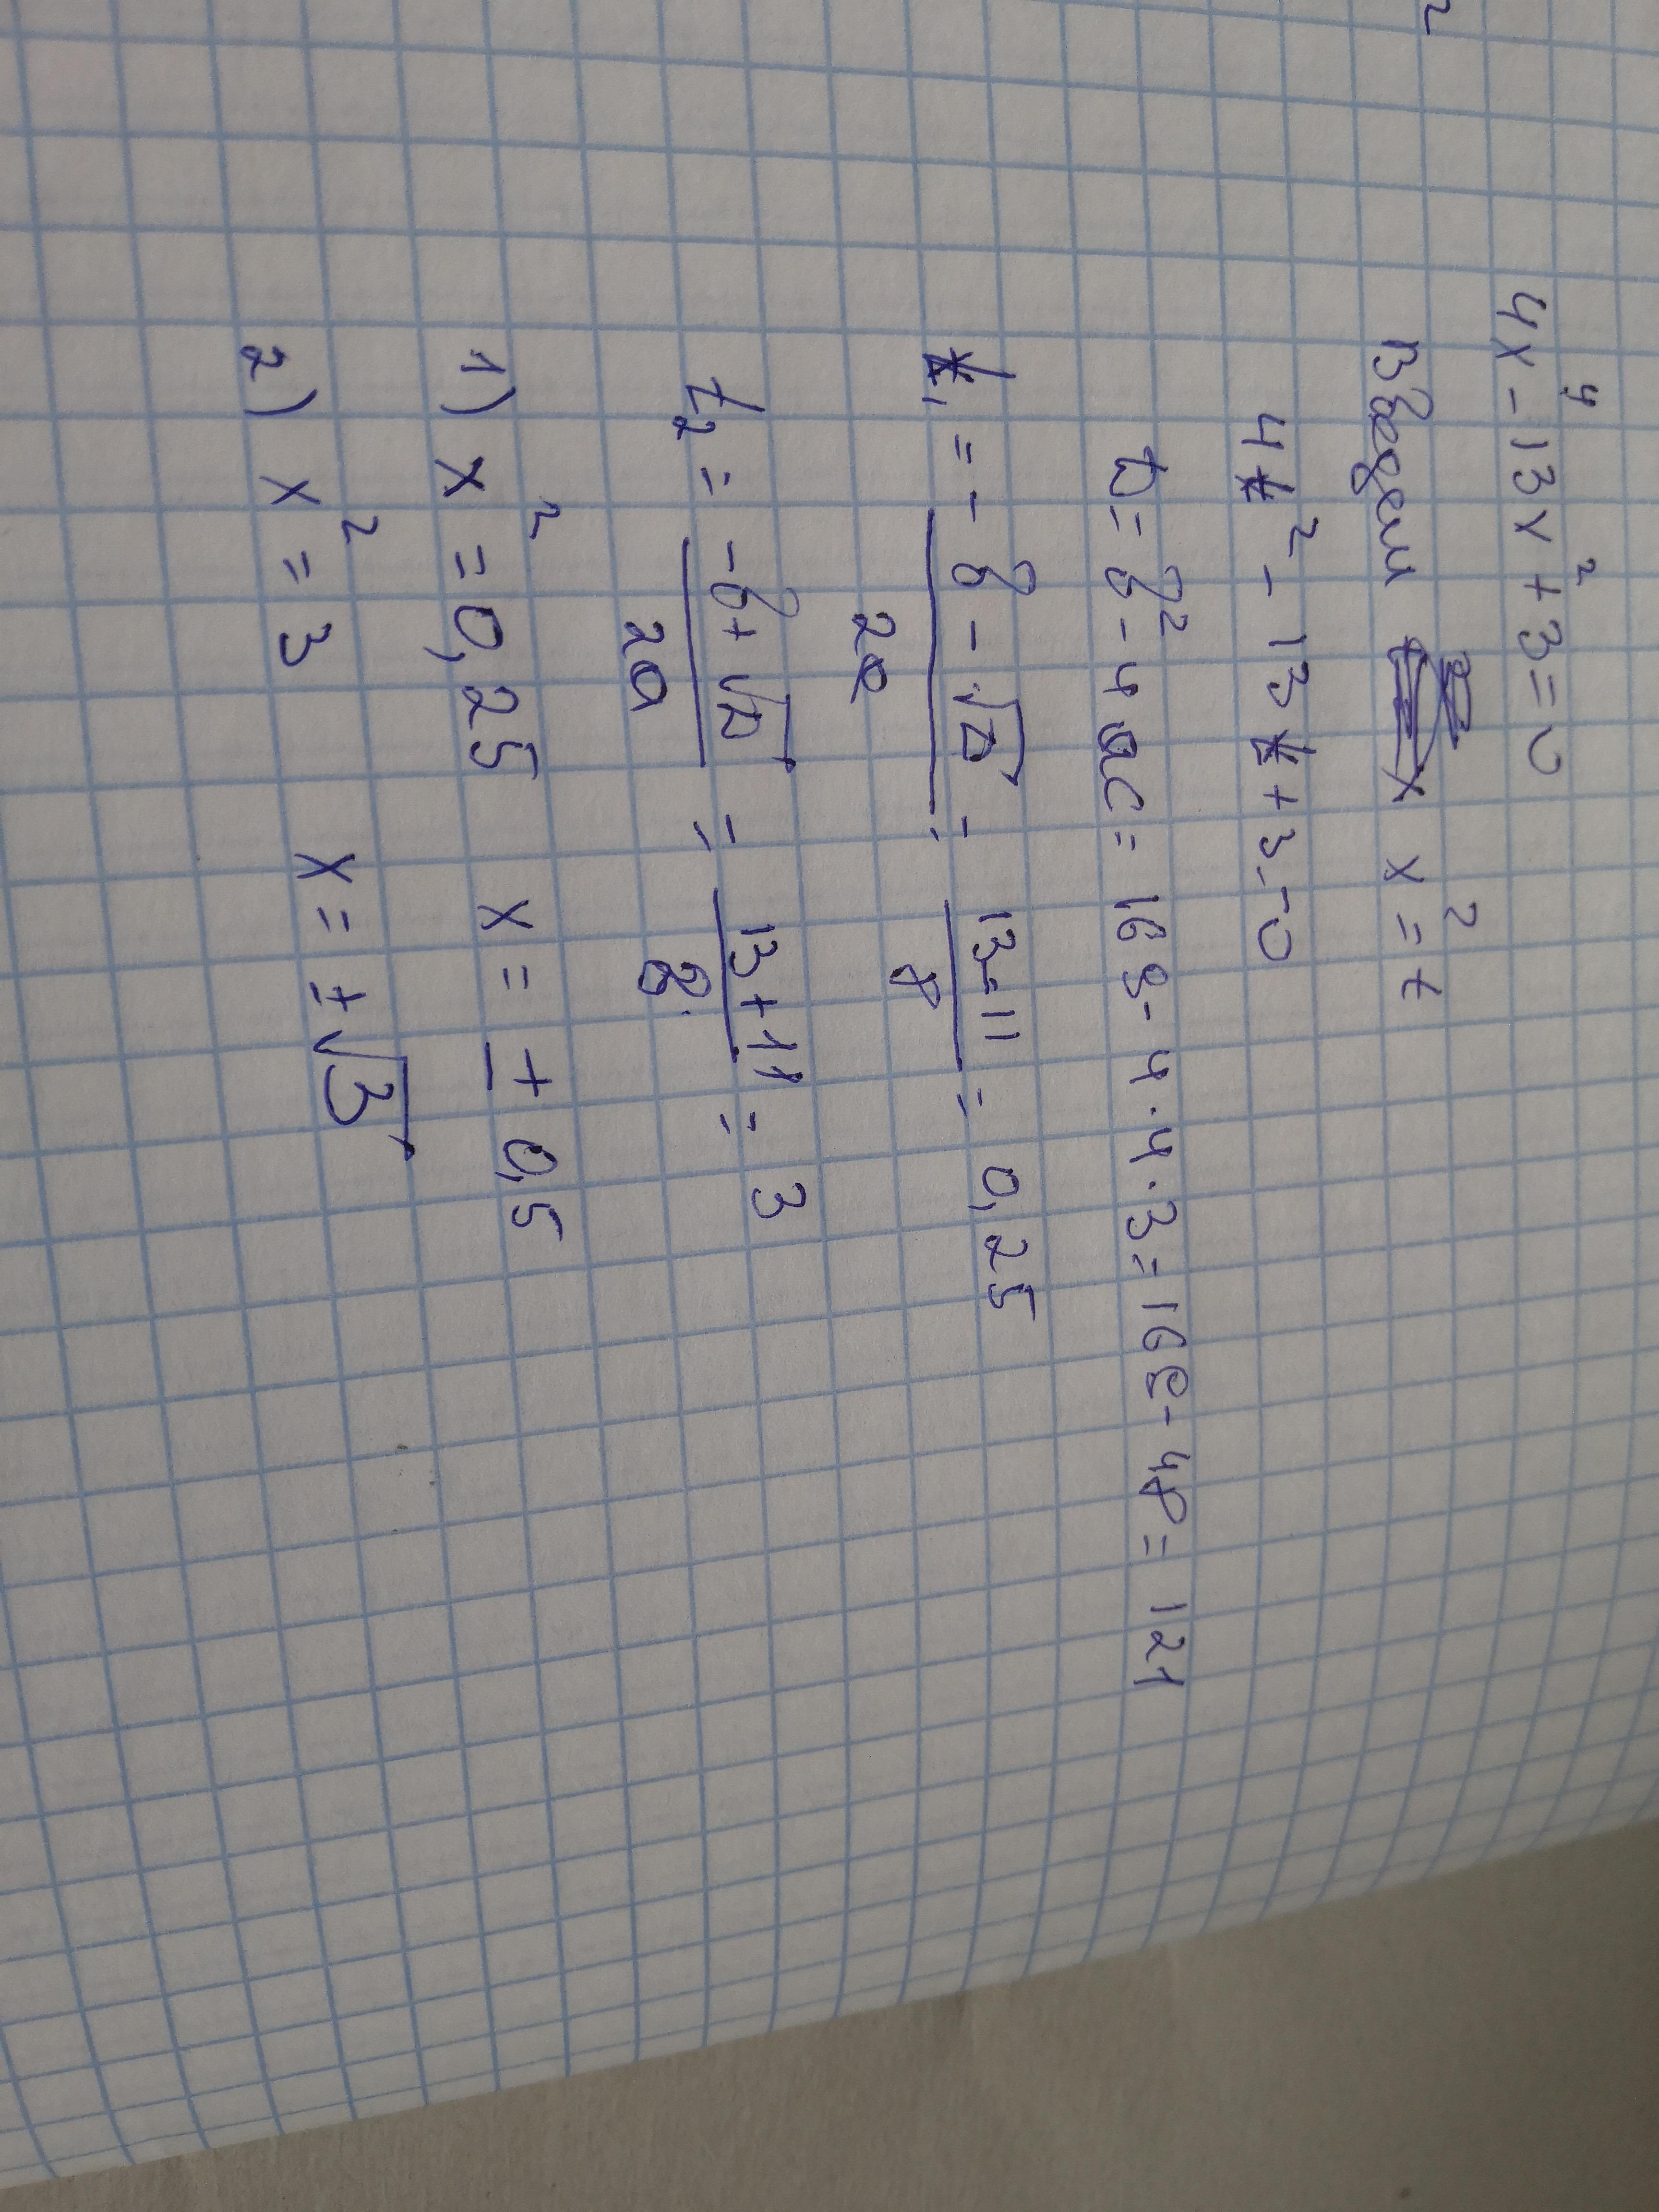 2
4x⁴ - 13x² + 3 = 0
Введем x² = t
4t² - 13t + 3 = 0
D = b² - 4ac = 169 - 4 · 4 · 3 = 169 - 48 = 121
t₁ = (-b - √D) / 2a = (13 - 11) / 8 = 0,25
t₂ = (-b + √D) / 2a = (13 + 11) / 8 = 3
1) x² = 0,25 x = ± 0,5
2) x² = 3 x = ± √3